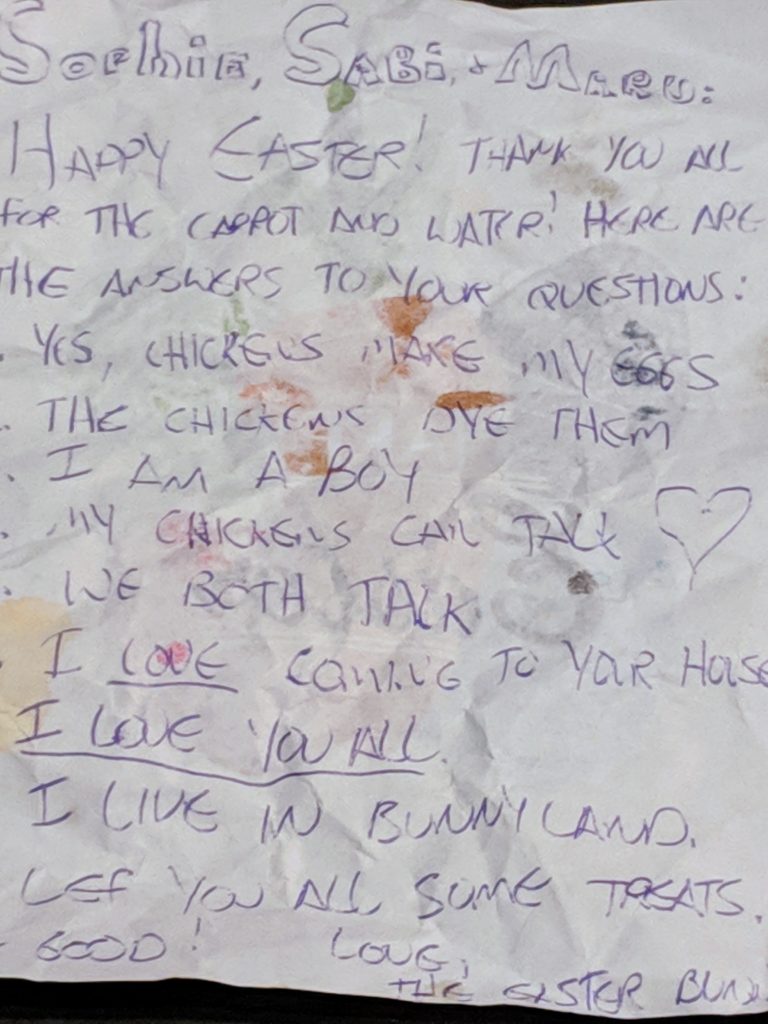 Sophia, SABi, + MARU:
HAPPY EASTER! THANK YOU ALL
FOR THE CARROT AND WATER! HERE ARE
THE ANSWERS TO YOUR QUESTIONS:
. YES, CHICKENS MAKE MY EGGS
. THE CHICKENS DYE THEM
. I AM A BOY
. MY CHICKENS CAN TALK ♡
. WE BOTH TALK
. I LOVE COMING TO YOUR HOUSE
I LOVE YOU ALL.
I LIVE IN BUNNYLAND.
LEF YOU ALL SOME TREATS.
GOOD! LOVE,
THE EASTER BUNN